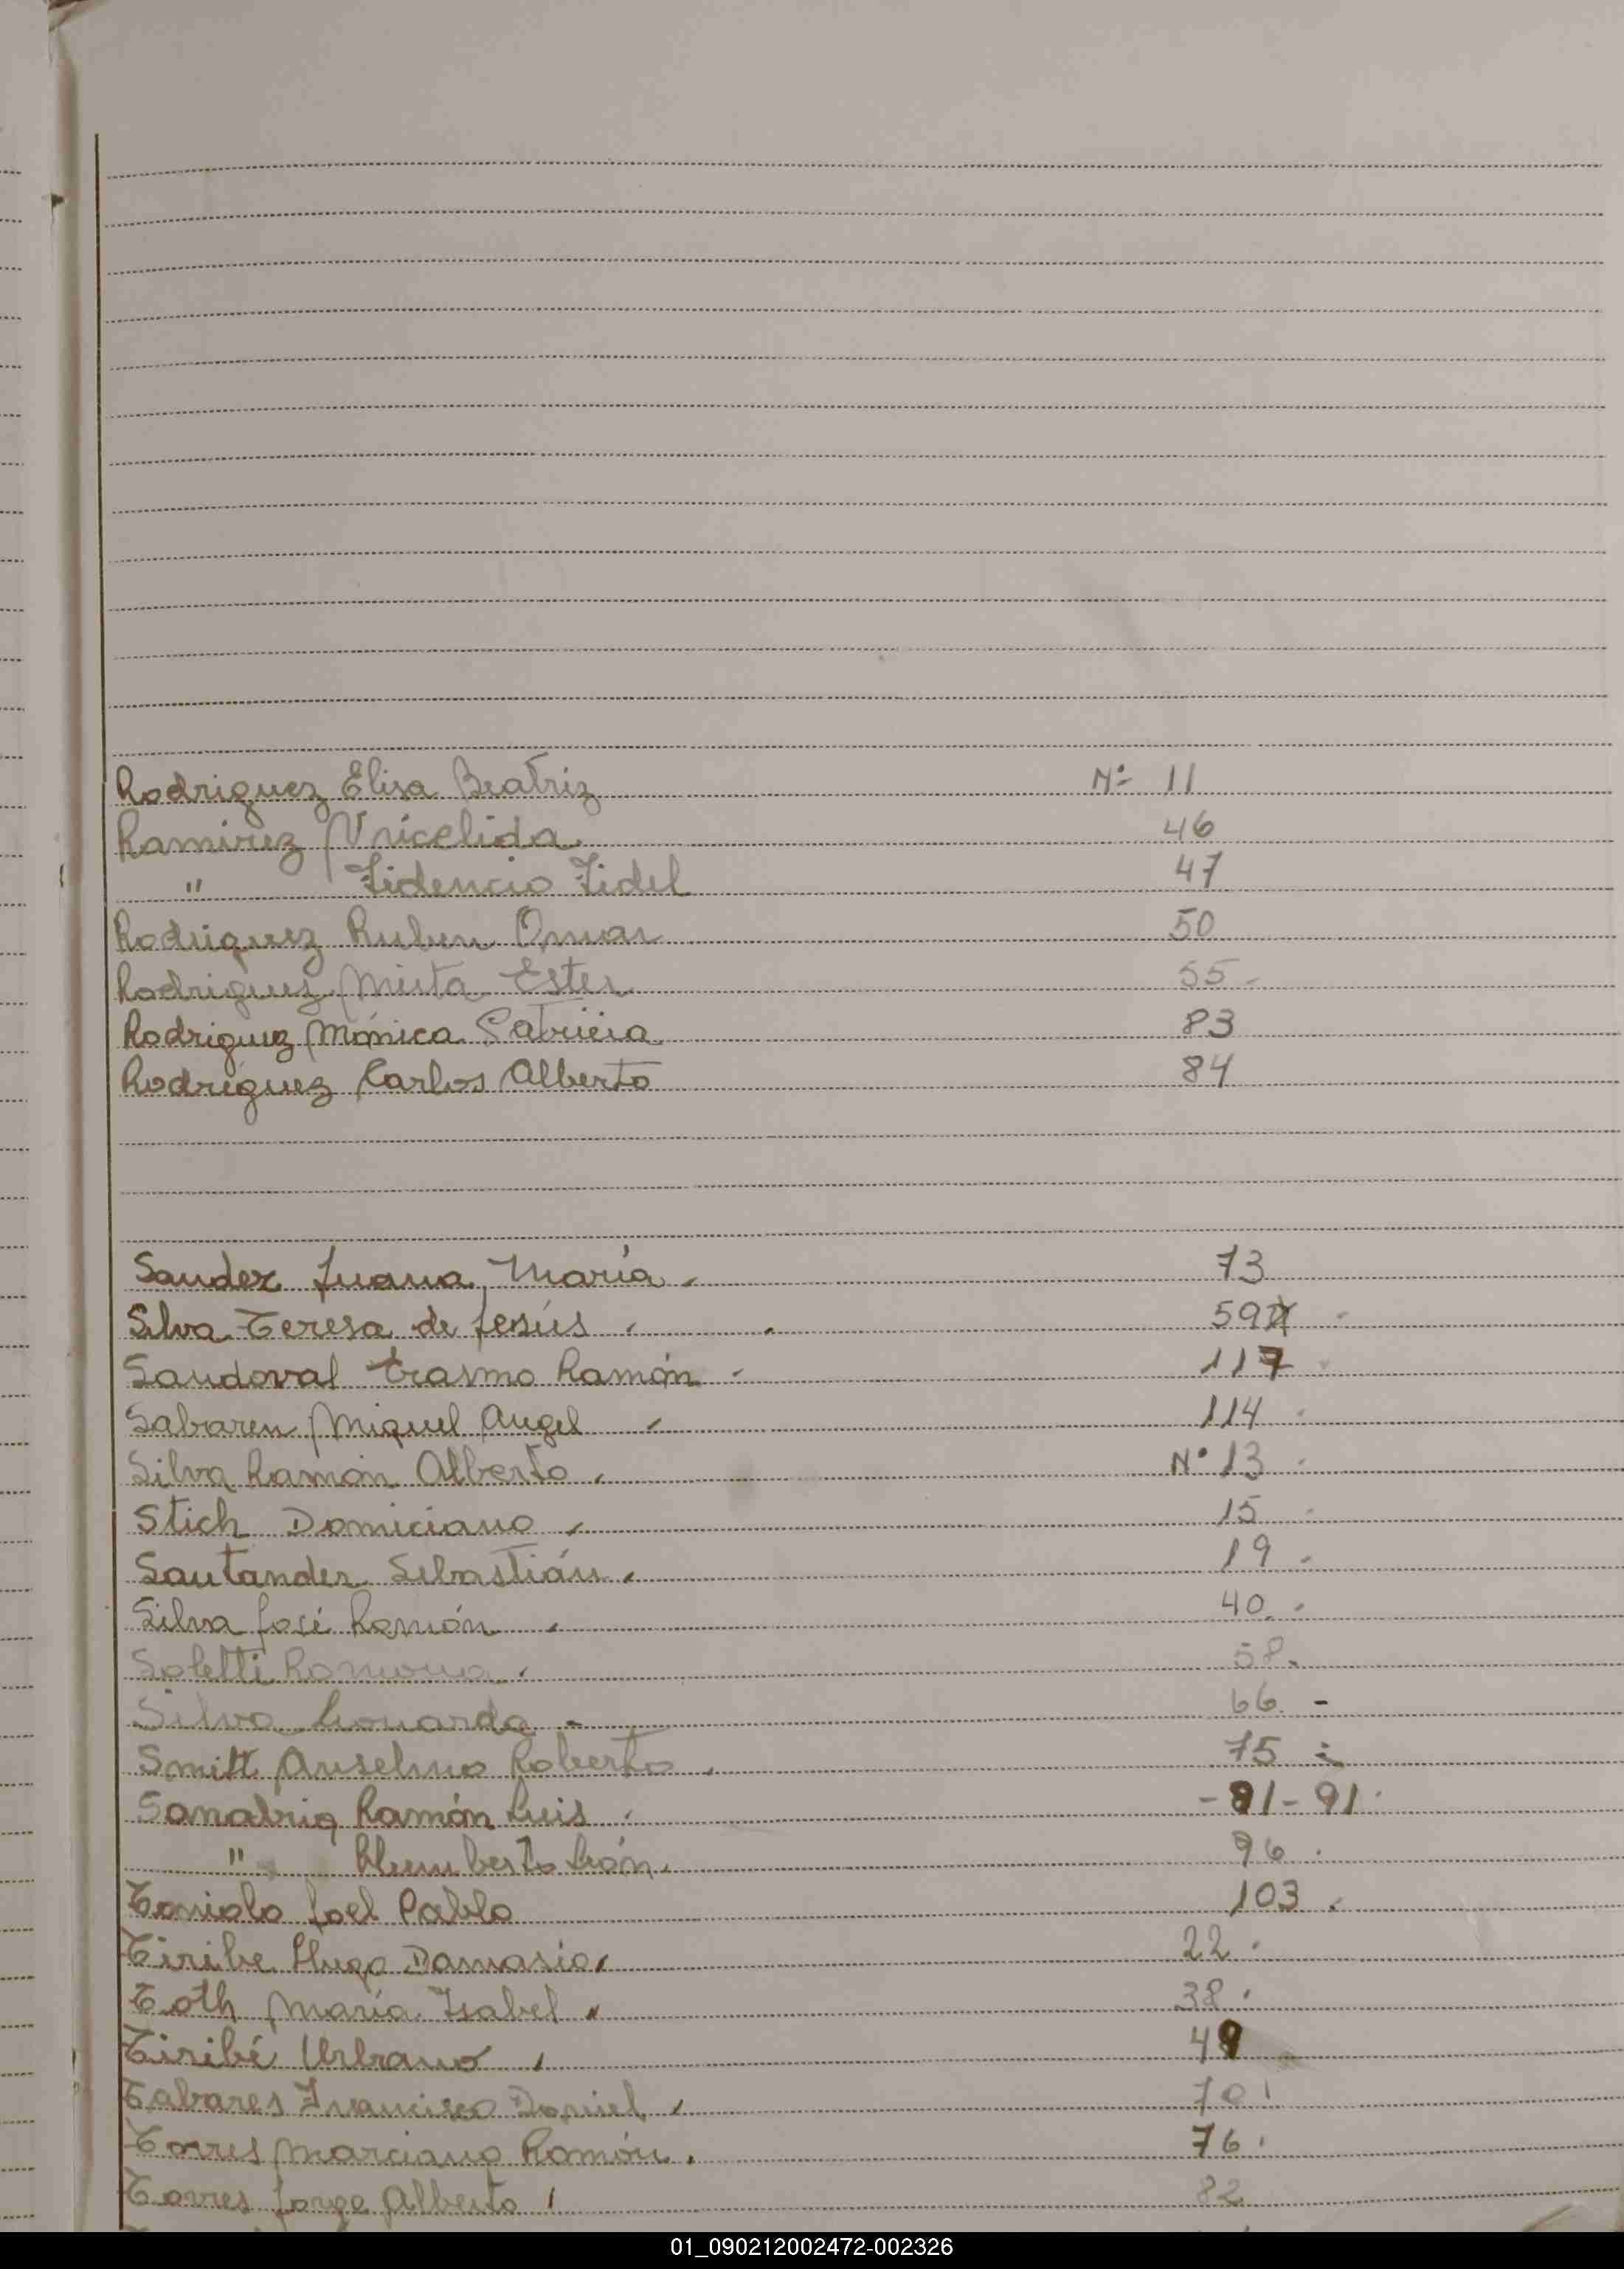 Rodriguez Elisa Beatriz Nº 11
Ramirez Nricelida 46
" Fidencio Fidel 47
Rodriguez Ruben Omar 50
Rodriguez Mirta Ester 55 -
Rodriguez Mónica Patricia 83
Rodríguez Carlos Alberto 84
Sander Juana María - 73
Silva Teresa de Jesús . 59
Sandoval Erasmo Ramón - 117
Sabaren Miguel Angel 114
Silva Ramón Alberto. Nº 13
Stich Domiciano 15
Santander Sebastián. 19
Silva José Ramón 40.
Soletti Ramona . 58.
Silva Leonarda - 66 -
Smitt Anselmo Roberto . 75
Sanabria Ramón Luis . - 91 - 91
" Humberto León. 96
Toniolo Joel Pablo 103
Tiribe Hugo Damasio 22
Toth María Isabel 38
Tiribé Urbano 49
Tabares Francisco Daniel 70
Torres Marciano Ramón. 76
Torres Jorge Alberto 82
01_090212002472-002326